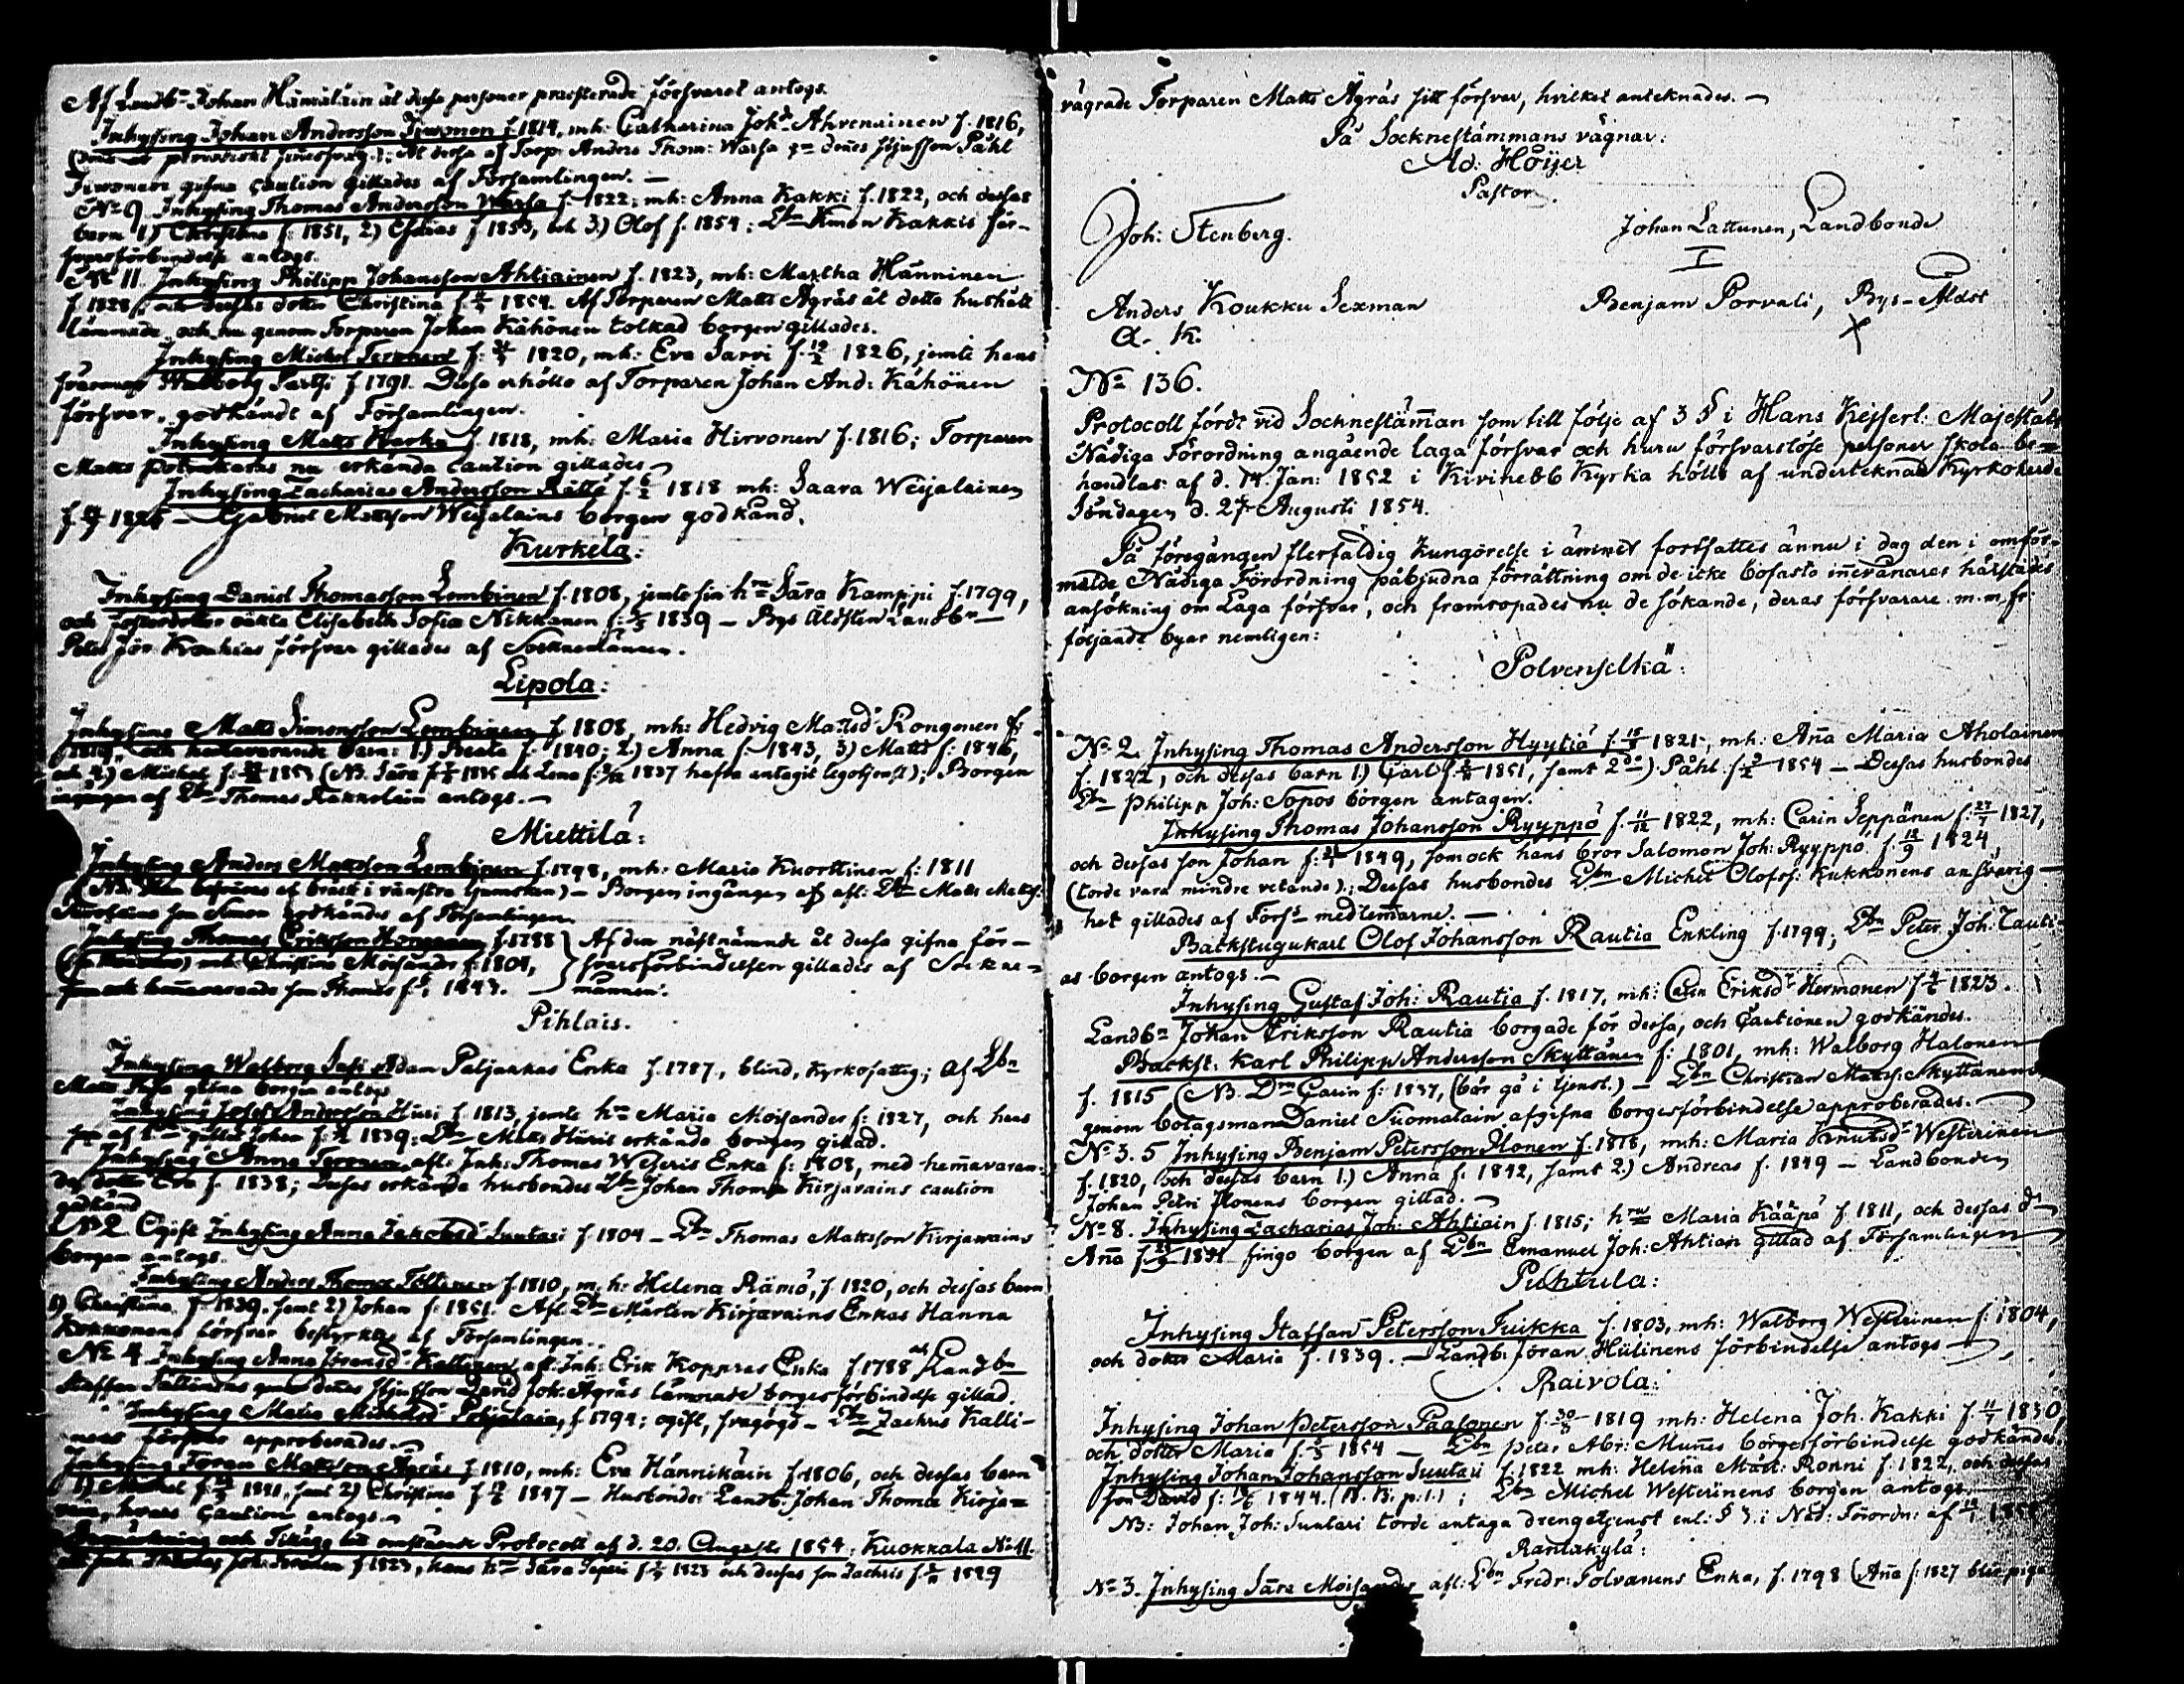 Af Landbn Johan Hämäläin åt dessa personer præsterade försvaret antogs.
Inhysing Johan Andersson Iiwonen f. 1814, mh: Catharina Johsdr Ahvenainen f. 1816,
åt dessa af Torp. Anders Thom: Warsa gm dennes Påhl
Iiwonen gifna Caution gillades af Församlingen. —
No 9 Inhysing Thomas Andersson Warsa f. 1822; mh: Anna Kakki f. 1822, och dessas
barn 1.) Christina f: 1851, 2) Esaias f 1853, och 3.) Olof f. 1854; Lbn Simon Kakkis för-
svarsförbindelse antogs.
No 11. Inhysing Philipp Johansson Ahtiainen f. 1823, mh: Martha Hänninen
f. 1828, och dessas dotter Christina f. 1854. Af Torparen Matts Ägräs åt detta hushåll
lämnade, och nu genom Torparen Johan Kähönen tolkad borgen gillades.
Inhysing Michel Teronen f: 1820, mh: Eva Sarvi f. 19/2 1826, jemte hans
svärmor Walborg f. 1791. Dessa erhöllo af Torparen Johan And: Kähönen
försvar, godkändt af Församlingen.
Inhysing Matts f. 1818, mh: Maria Hirvonen f. 1816; Torparen
Matts nu erkända caution gillades
Inhysing Zacharias Andersson Rättö f. 1818 mh: Saara Weijalainen
f. 1825 — Gabriel Mattsson Weijalains borgen godkänd.
Kurkela:
Inhysing Daniel Thomasson Lembinen f. 1808, jemte sin hru Sara Kamppi f. 1799,
och fosterdotter oäkta Elisabeth Sofia Nikkanen f: 1839 — Bys Äldsten Landbn
Peter Jör. Koukias försvar gillades af Socknemännen.
Lipola:
Inhysing Matts Simonsson Lembinen f. 1808, mh: Hedvig Mattsdr Rongonen f:
1819, och hemmavarande barn: 1) Beata f. 1840; 2) Anna f. 1843, 3) Matts f. 1846,
och 4) Michel f: 1853 (NB. Sara f. 1835 och Lena f. 1837 hafva antagit legotjenst); Borgen
ingången af Lbn Thomas Kakkolain antogs. —
Miettilä:
Inhysing Anders Mattsson Lembinen f. 1798, mh: Maria Kuorttinen f: 1811
(NB. Han besväras af bråck i vänstra ljumsken) — Borgen ingången af afl: Lbn Matts Matts:
son Simon godkändes af Församlingen
Inhysing Thomas Eriksson Hongonen f. 1788 } Af den nästnämnde åt dessa gifna för-
mh: Christina Moisander f. 1804, } svarsförbindelsen gillades af Sockne-
som ock hemmavarande son Thomas f. 1843. — männen.
Pihlais.
Inhysing Walborg Adam Paljakkas Enka f. 1787, blind, kyrkofattig; Af Lbn
Matts gifna borgen antogs
Inhysing Josef Andersson Hüri f. 1813, jemte hru Maria Moisander f: 1827, och hans
Johan f: 1839; Lbn Matts Hüris erkände borgen gillad.
Inhysing Anna Teronen, afl: Inh: Thomas Weseris Enka f: 1808, med hemmavaran-
de dotter Eva f. 1838; dessas erkände husbondes Lbn Johan Thomæ Kirjavains caution
godkänd
No 2. Ogift Inhysing Anna Jakobsdr Suutari f. 1804 — Lbn Thomas Mattsson Kirjavains
borgen antogs.
Inhysing Anders Thomæ Tollanen f. 1810, mh: Helena Rämö, f 1820, och dessas barn
1) Christina f. 1839, samt 2) Johan f: 1851. Afl Lbn Mårten Kirjavains Enkas Hanna
Kokkonens försvar bestyrktes af Församlingen.
No 4 Inhysing Anna Göransdr Kallinen, afl: Inh: Erik Koppras Enka f. 1788 af Landbn
Staffan gnm dennes David Joh: Ägräs lämnade borgesförbindelse gillad.
Inhysing Maria Michelsdr Pohjalain, f. 1794; ogift, — Lbn Zachris Kalli-
nens försvar approberades. —
Inhysing Jöran Mattsson Ägräs f. 1810, mh: Eva Hännikäin f. 1806, och dessas barn
1) Michel f. 1841, samt 2) Christina f. 1847 — Husbonde: Landb: Johan Thomæ Kirja-
vain, hvars Caution antogs. —
Anmärkning och Tillägg till omstående Protocoll af d. 20. Augusti 1854: Kuokkala No 11.
Inh: Thomas Joh: f. 1823, hans hru Sara f. 1823 och dessas son Zachris f. 1849
vägrade Torparen Matts Ägräs sitt försvar, hvilket anteknades. —
På Socknestämmans vägnar:
Ad: Höijer
Pastor.
Joh: Stenberg.
Johan Lattunen, Landbonde
I
Anders Koukku Sexman
A. K.
Benjam Porvali, Bys-Äldst
X
No 136.
Protocoll fördt vid Socknestämman som till följe af 3 § i Hans Keijserl: Majestäts
Nådiga Förordning angående laga försvar och huru försvarslöse personer skola be-
handlas af d. 14. Jan: 1852 i Kivinebb Kyrka hölls af undertecknad Kyrkoherde
Söndagen d. 27 Augusti 1854.
På föregången flerfaldig Kungörelse i ämnet fortsattes ännu i dag den i omför-
mälde Nådiga Förordning påbjudna förrättning om de icke bofasta innevånares härstädes
ansökning om Laga försvar, och framropades nu de sökande, deras försvarare m. m. fr.
följande byar nemligen:
Polvenselkä:
No 2. Inhysing Thomas Andersson Hyytiä f. 1821, mh: Anna Maria Aholainen
f. 1822, och dessas barn 1.) Carl f. 1851, samt 2do) Påhl f. 1854 — Dessas husbondes
Lbn Philipp Joh: Sopos borgen antagen.
Inhysing Thomas Johansson Ryyppö f. 11/12 1822, mh: Carin Seppänen f: 27/7 1827,
och dessas son Johan f: 1849, som ock hans bror Salomon Joh: Ryyppö f. 1824,
(torde vara mindre vetande); Dessas husbondes Lbn Michel Olofss: Kukkonens ansvarig-
het gillades af Förss medlemmarne. —
Backstugukarl Olof Johansson Rautia Enkling f. 1799; Lbn Peter Joh: Tauti-
as borgen antogs. —
Inhysing Gustaf Joh: Rautia f. 1817, mh: Carin Eriksdr Hermonen f. 1823.
Landbn Johan Eriksson Rautia borgade för dessa, och Cautionen godkändes.
Backst: Karl Philipp Andersson Skyttänen f: 1801, mh: Walborg Halonen
f. 1815 (NB. Dm Carin f: 1837, (bör gå i tjenst.) — Lbn Christian Matts: Skyttänens
genom bolagsman Daniel Suomalain afgifna borgesförbindelse approberades. —
No 3. 5 Inhysing Benjam Petersson Ilonen f. 1818, mh: Maria Knutsdr Westerinen
f. 1820, och dessas barn 1.) Anna f. 1842, samt 2.) Andreas f. 1849 — Landbonden
Johan Petri Ilonens borgen gillad. —
No 8. Inhysing Zacharias Joh: Ahtiain f. 1815; hru Maria Kääpä f. 1811, och dessas dr
Anna f. fingo borgen af Lbn Emanuel Joh: Ahtian gillad af Församlingen
Puhtula:
Inhysing Staffan Petersson Tuikka f. 1803, mh: Walborg Westerinen f: 1804,
och dotter Maria f. 1839. — Landb: Jöran Hülinens förbindelse antogs —
Raivola:
Inhysing Johan Petersson Paasonen f. 30/8 1819 mh: Helena Joh. Kakki f. 11/7 1830,
och dotter Maria f. 1854 — Lbn Peter Abr: Munnes borgesförbindelse godkändes.
Inhysing Johan Johansson Suutari f. 1822 mh: Helena Matt: Ronni f. 1822, och dessas
son David f: 1844. (N. B. p. 1.); Lbn Michel Westerinens borgen antogs.
NB: Johan Joh: Suutari torde antaga drengetjenst enl: § 3. i Nåd: Förordn: af
Rantakylä:
No 3. Inhysing Sara Moisander afl: Lbn Fredr: Polvanens Enka, f. 1798 (Anna f: 1827 blir piga